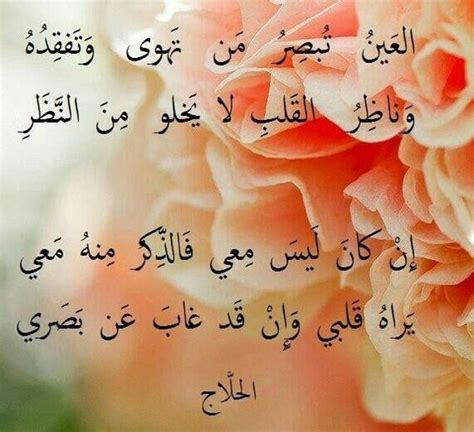 العَينُ تُبصِرُ مَن تَهوى وَتَفقِدُهُ
وَناظِرُ القَلبِ لا يَخلو مِنَ النَّظَرِ
إِنْ كانَ لَيسَ مَعِي فَالذِّكر مِنهُ مَعي
يَراهُ قَلبي وَإِنْ قَد غابَ عَن بَصَري
الحَلَّاج